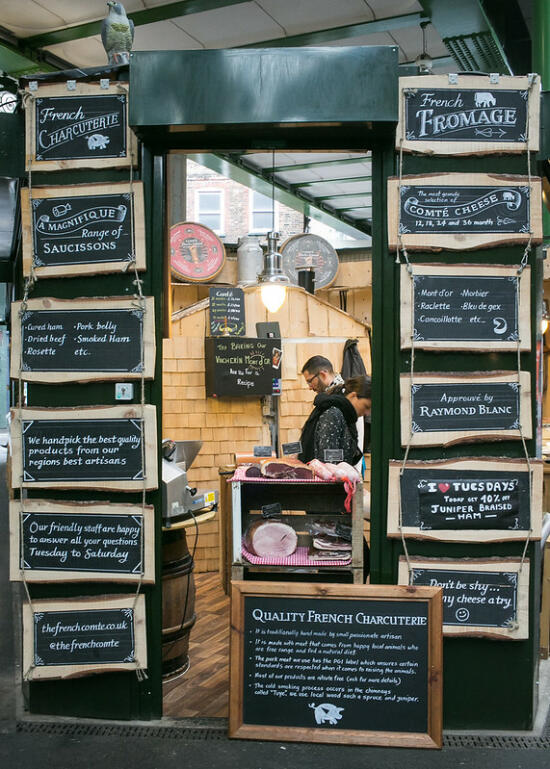 French
CHARCUTERIE
A MAGNIFIQUE
Range of
SAUCISSONS
Cured ham
Dried beef
Rosette
Pork belly
Smoked Ham
etc..
We handpick the best quality
products from our
regions best artisans.
Our friendly staff are happy
to answer all your questions
Tuesday to Saturday
thefrenchcomte.co.uk
@thefrenchcomte
Try BAKING OUR
VACHERIN MONT D'OR
RECIPE
QUALITY FRENCH CHARCUTERIE
• It is traditionally hand made by small passionate artisan.
• It is made with meat that comes from happy local animals who
are free range and fed a natural diet.
• The pork meat we use has the PGI label which ensures certain
standards are respected when it comes to raising the animals.
• Most of our products are nitrate free (ask for more details)
• The cold smoking process occurs in the chimneys
called "Tuye", we use local wood such a spruce and juniper.
French
FROMAGE
The most grande
selection of
COMTÉ CHEESE
12, 18, 24 and 36 month
• Mont d'or • Morbier
• Raclette • Bleu de gex
• Cancoillotte etc...
Approuvé by
RAYMOND BLANC
I ♥ TUESDAYS
TODAY GET 10% OFF
JUNIPER BRAISED
HAM
Don't be shy...
any cheese a try.